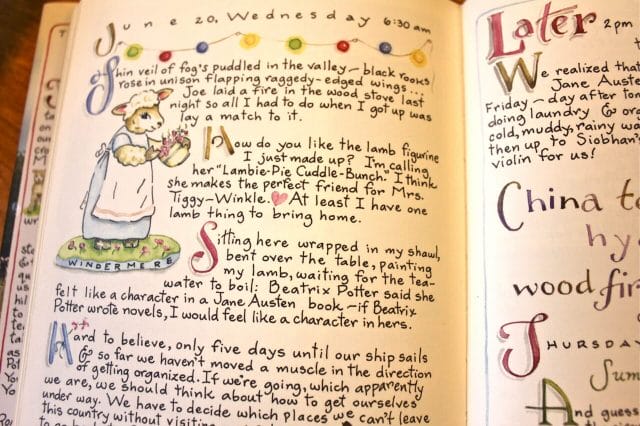 June 20, Wednesday 6:30 am
Thin veil of fog's puddled in the valley – black rooks
rose in unison flapping raggedy-edged wings...
Joe laid a fire in the wood stove last
night so all I had to do when I got up was
lay a match to it.
How do you like the lamb figurine
I just made up? I'm calling
her "Lambie-Pie Cuddle-Bunch." I think
she makes the perfect friend for Mrs.
Tiggy-Winkle. ♥ At least I have one
lamb thing to bring home.
WINDERMERE
Sitting here wrapped in my shawl,
bent over the table, painting
my lamb, waiting for the tea-
water to boil: Beatrix Potter said she
felt like a character in a Jane Austen book – if Beatrix
Potter wrote novels, I would feel like a character in hers.
Hard to believe, only five days until our ship sails
& so far we haven't moved a muscle in the direction
of getting organized. If we're going, which apparently
we are, we should think about how to get ourselves
under way. We have to decide which places we can't leave
this country without
Later 2pm
We realized that
Jane Auste
Friday – day after tom
doing laundry & org
cold, muddy, rainy wa
then up to Siobhan's
violin for us!
China t
hy
wood fir
THURSDAY
Sum
And guess